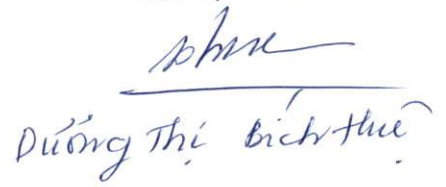 Dướng Thị Bích Huệ